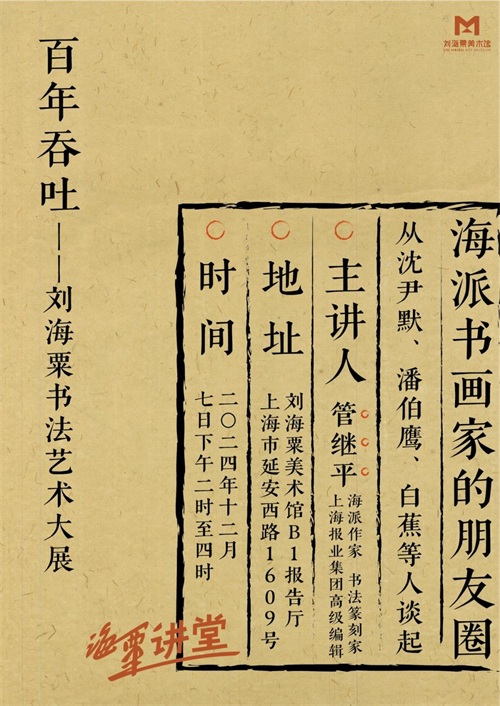 刘海粟美术馆
LIU HAISU ART MUSEUM
海派书画家的朋友圈
从沈尹默、潘伯鹰、白蕉等人谈起
主讲人
管继平
海派作家 书法篆刻家
上海报业集团高级编辑
地址
刘海粟美术馆B1报告厅
上海市延安西路1609号
时间
二〇二四年十二月
七日下午二时至四时
百年吞吐——刘海粟书法艺术大展
海粟讲堂